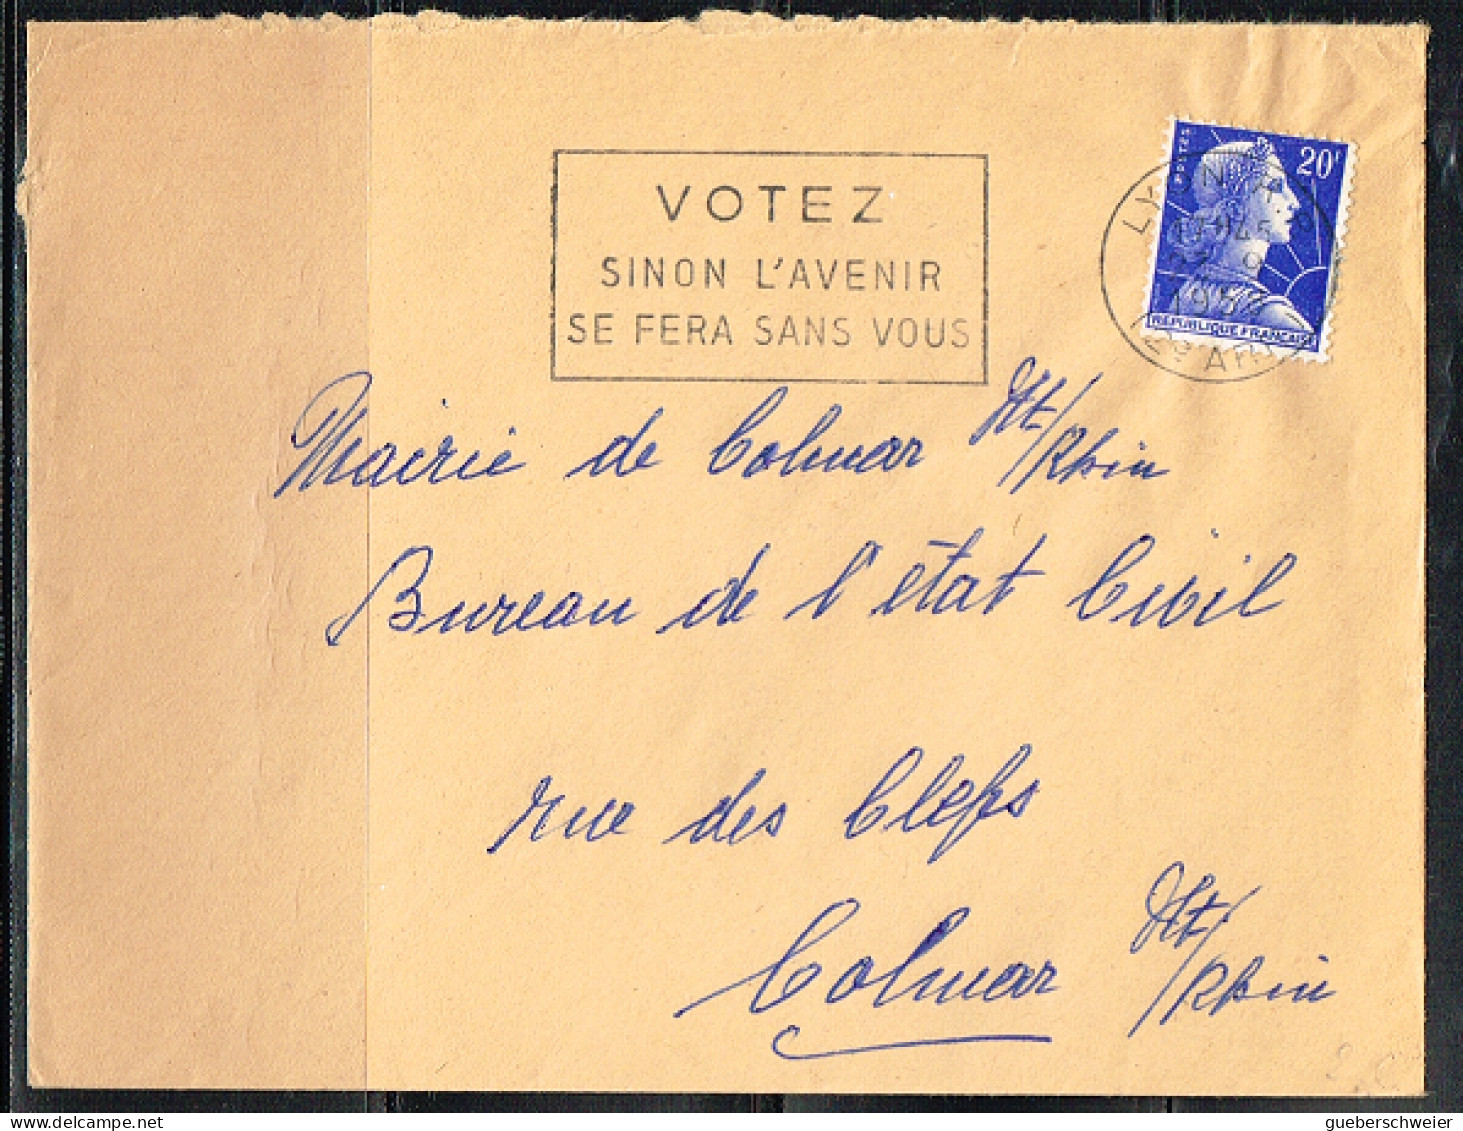 VOTEZ
SINON L'AVENIR
SE FERA SANS VOUS
POSTES
20F
LYON
17H45
9
REPUBLIQUE FRANÇAISE
Mairie de Colmar Ht/Rhin
Bureau de l'état Civil
rue des Clefs
Colmar Ht/Rhin
gueberschweier - delcampe.net